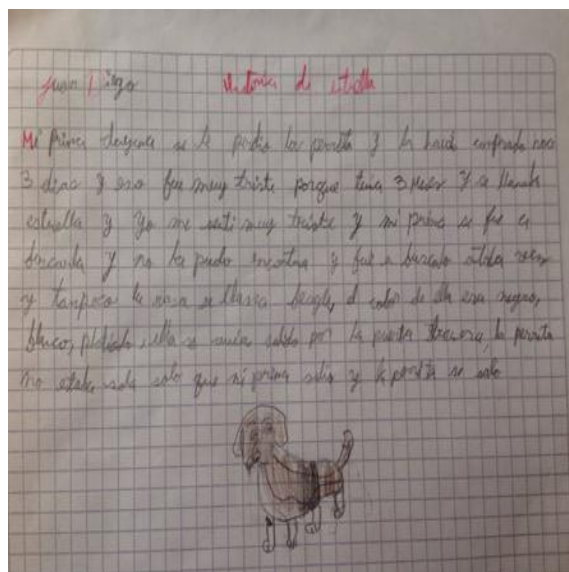 Juan Diego historia de estrella
Mi prima dayana se le perdio la perrita y la havia comprado hace
3 dias y eso fue muy triste porque tenia 3 meses y se llamaba
estrella y yo me senti muy triste y mi prima se fue a
buscarla y no la pudo encontrar y fue a buscarla otra vez
y tampoco la raza se llama beagle, el color de ella era negro,
blanco, ella se avia salido por la puerta trasera, la perrita
no estaba sola solo que mi prima salio y la perrita se salio